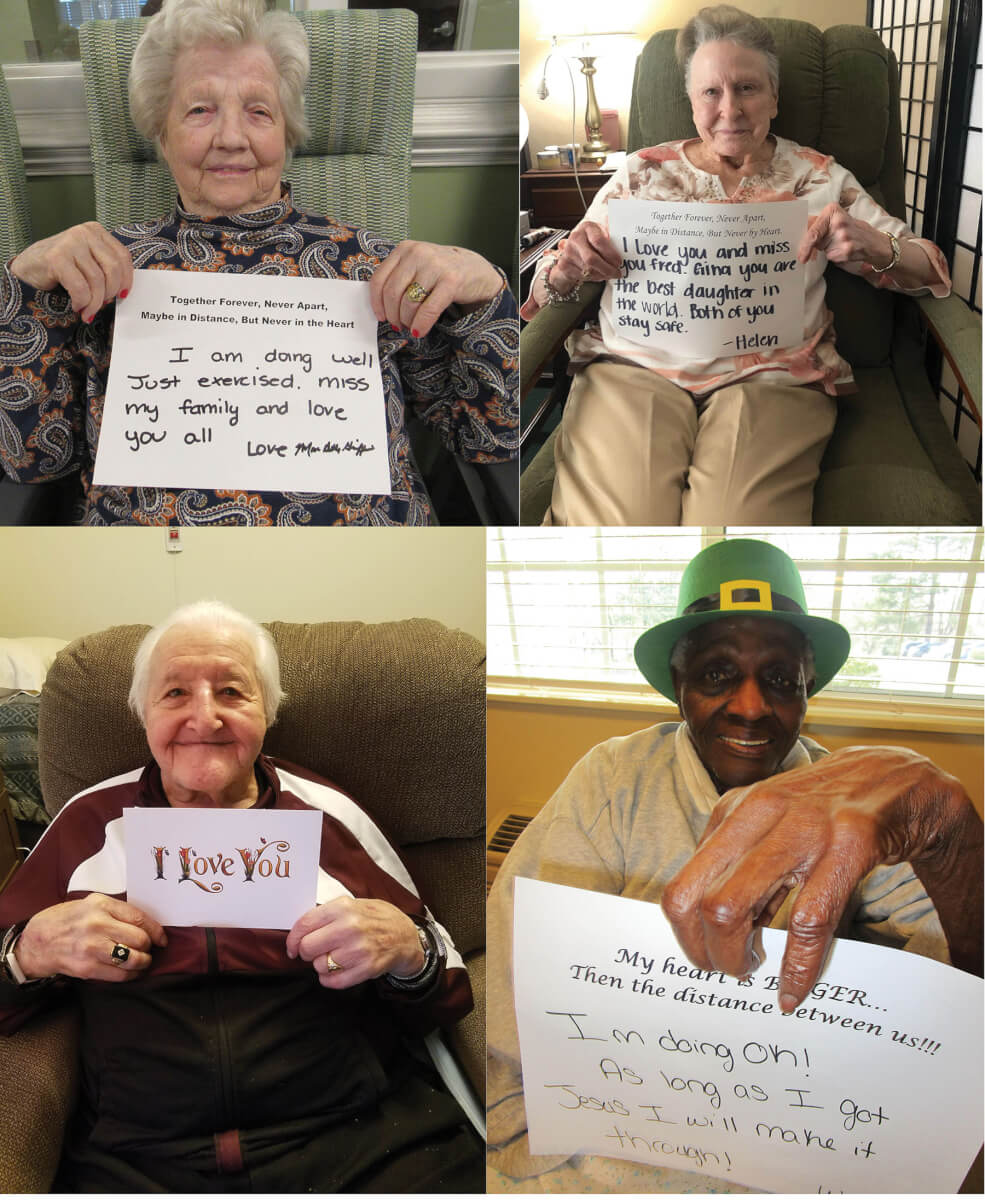 Together Forever, Never Apart,
Maybe in Distance, But Never in the Heart
I am doing well
Just exercised. miss
my family and love
you all
Love
Together Forever, Never Apart,
Maybe in Distance, But Never by Heart.
I Love you and miss
you fred! Gina you are
the best daughter in
the world. Both of you
stay safe.
-Helen
I Love You
My heart is
Then the distance between us!!!
I'm doing Oh!
As long as I got
Jesus I will make it
through!